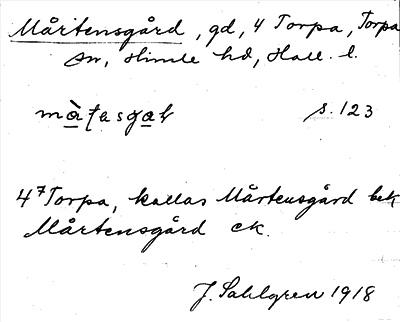 Mårtensgård, gd, 4 Torpa, Torpa
sn, Himle hd, Hall. l.
s. 123
4⁷ Torpa, kallas Mårtensgård bek
Mårtensgård ek.
J. Sahlgren 1918